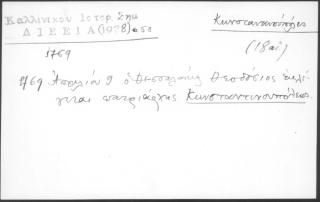 Καλλινίκου Ιστορ. Σημ
ΔΙΕΕΙΑ(1978)σ58
Κωνσταντινουπόλεως
(18αἰ)
1769
1769 Ἀπριλίου 9 ὁ Θεσσαλονίκης Θεοδόσιος ἐκλέ
γεται πατριάρχης Κωνσταντινουπόλεως.